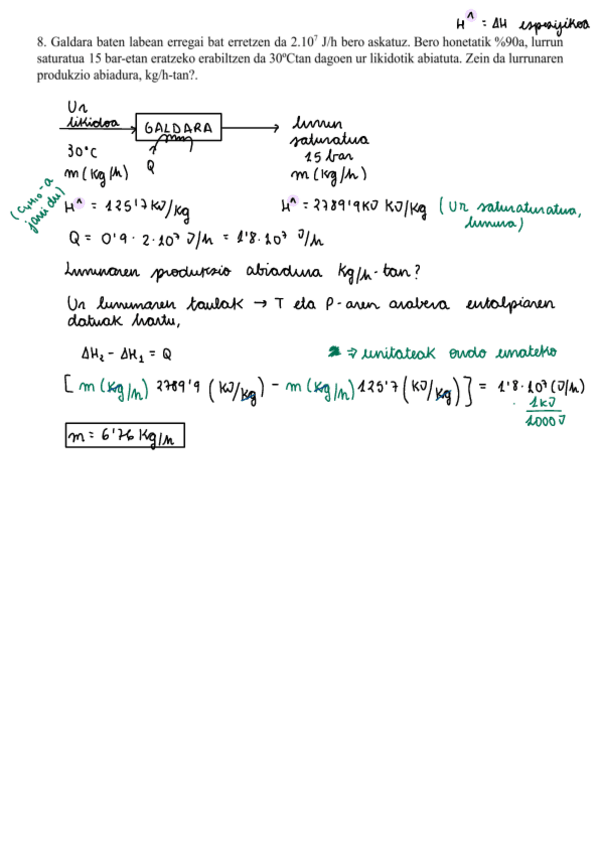 H^ = ΔH espezifikoa
8. Galdara baten labean erregai bat erretzen da 2.10⁷ J/h bero askatuz. Bero honetatik %90a, lurrun
saturatua 15 bar-etan eratzeko erabiltzen da 30ºCtan dagoen ur likidotik abiatuta. Zein da lurrunaren
produkzio abiadura, kg/h-tan?.
Ur
likidoa GALDARA lurrun
saturatua
30°C Q 15 bar
m (kg/h) m (kg/h)
jarri du)
H^ = 125'7 KJ/kg H^ = 2789'9 KJ KJ/kg (Ur saturaturatua,
lurruna)
Q = 0'9 · 2·10⁷ J/h = 1'8·10⁷ J/h
Lurrunaren produkzio abiadura kg/h-tan?
Ur lurrunaren taulak → T eta P-aren arabera entalpiaren
datuak hartu,
ΔH₂ - ΔH₁ = Q ⇒ unitateak ondo emateko
[m (kg/h) 2789'9 (KJ/kg) - m (kg/h) 125'7 (KJ/kg)] = 1'8·10⁷ (J/h)
· 1KJ
1000J
m = 6'76 kg/h